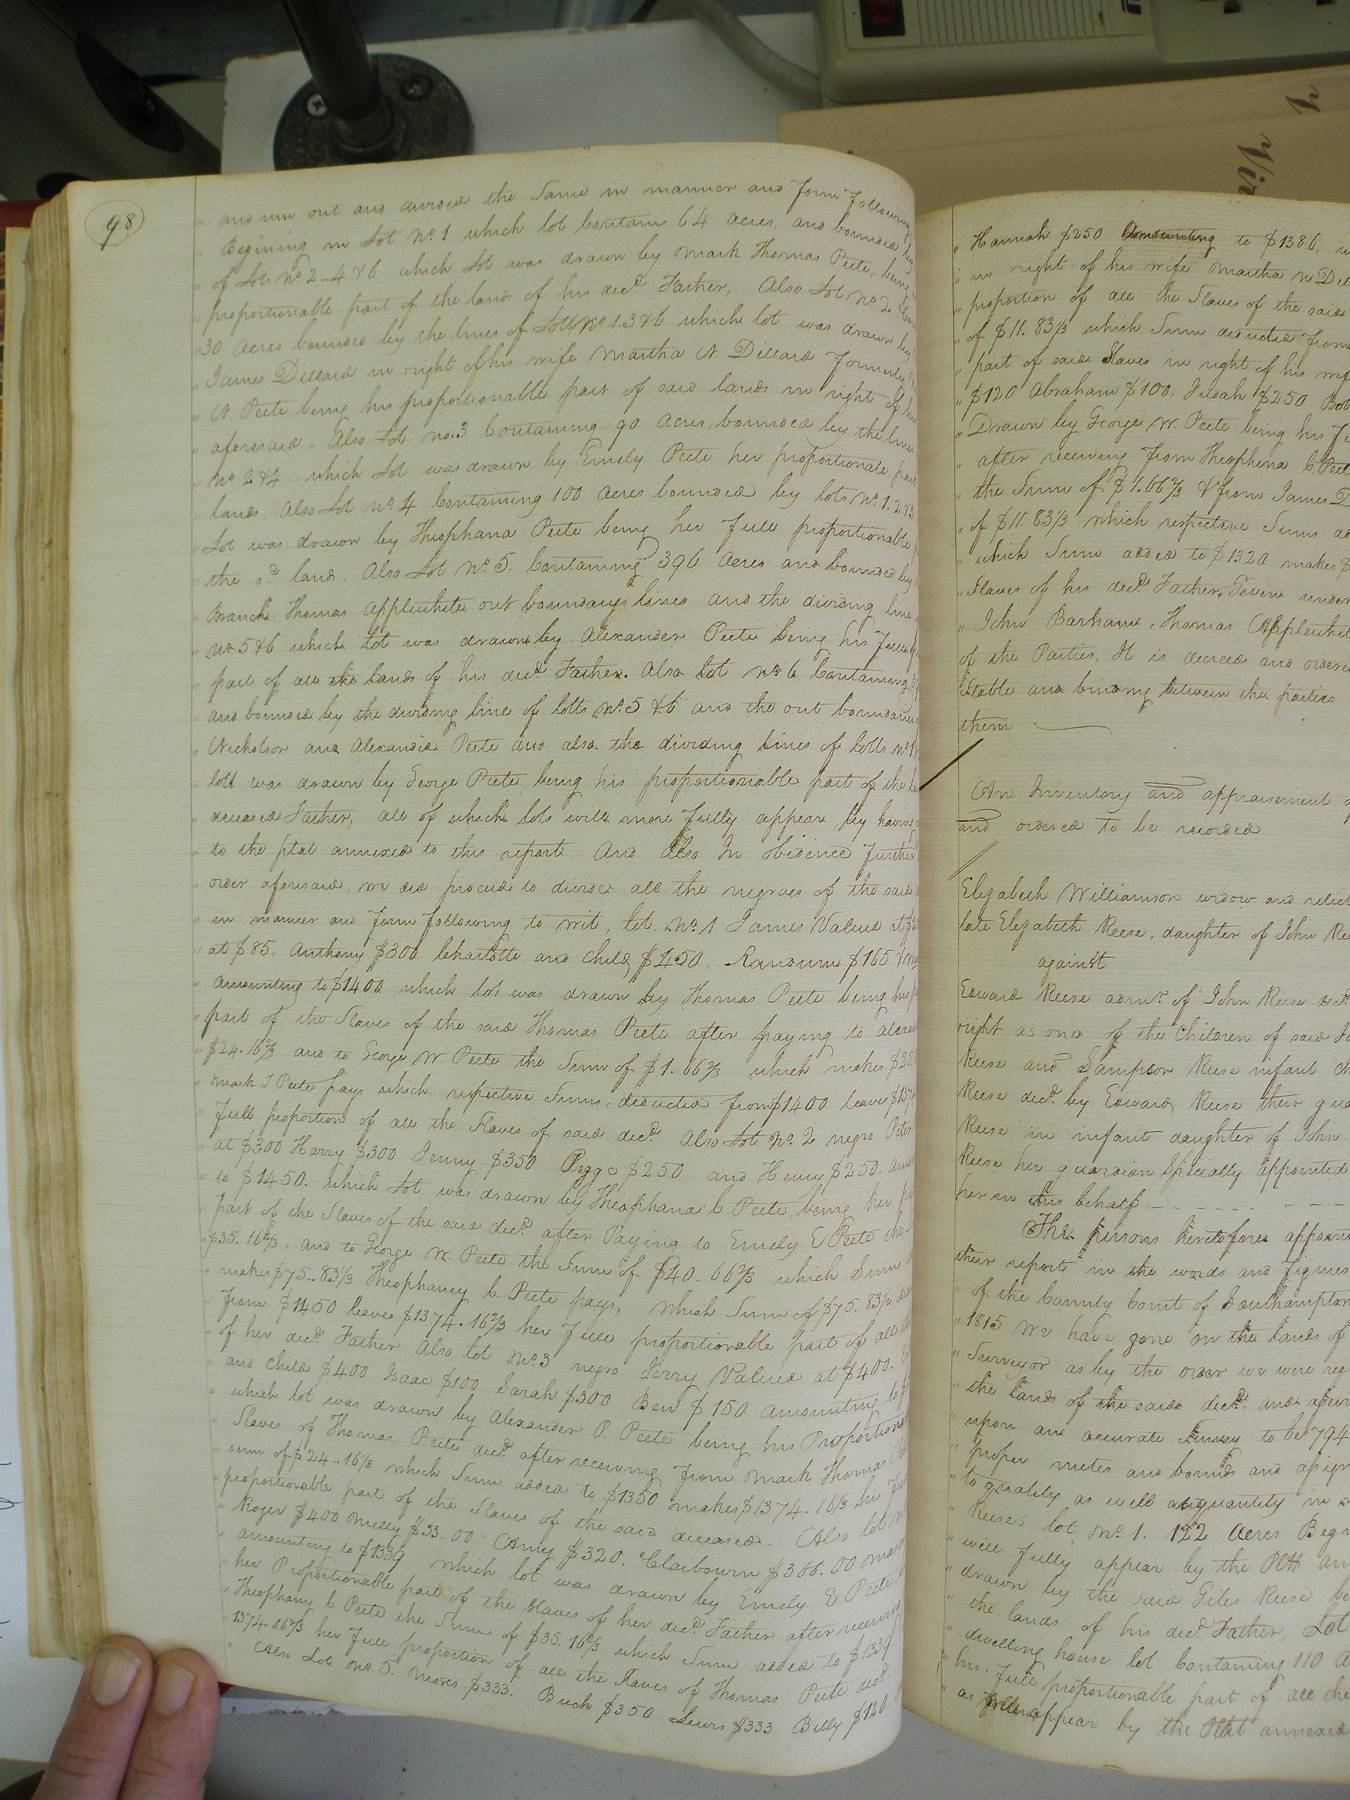 98
and run out and divided the Same in manner and form following
Begining in Lot No. 1 which lot Contains 64 acres, and bounded by
of Lots No. 2-4 & 6 which Lot was drawn by Mark Thomas Peete, being
proportionable part of the lands of his decd. Father, Also Lot No. 2
30 acres bounded by the lines of Lotts No. 1. 3 & 6 which lot was drawn by
James Dillard in right of his wife Martha N Dillard Formerly
N Peete being his proportionable part of said lands in right of his
aforesaid. Also Lot no. 3 Containing 90 Acres, bounded by the lines
No 2 & 4 which Lot was drawn by Emely Peete her proportionate part
lands. Also Lot No. 4 Containing 100 acres bounded by lots No. 1. 2 & 3
Lot was drawn by Theophana Peete being her full proportionable
the sd. land. Also Lot No. 5. Containing 396 acres and bounded by
Branch, Thomas Applewhite out boundary lines and the dividing line
No. 5 & 6 which lot was drawn by Alexander Peete being his full
part of all the lands of his decd. Father. Also Lot No. 6 Containing
and bounded by the dividing line of lotts No. 5 & 6 and the out boundaries
Nicholson and Alexandia Peete and also the dividing lines of lotts No 1
lott was drawn by George Peete, being his proportionable part of the
deceased Father, all of which lots will more fully appear by having
to the plat annexed to this report And Also In obidence further
order aforesaid, we did proceed to divide all the negroes of the said
in manner and form following to wit, lot No. 1 James Valued at
at $85. Anthony $300 Charlotte and Child $450. Randum $165
amounting to $1400 which lot was drawn by Thomas Peete being his
part of the Slaves of the said Thomas Peete after paying to
$24.16⅔ and to George W Peete the Sum of $1.66⅔ which makes
Mark T Peete pays which respective Sums, deducted from $1400 leaves
full proportion of all the Slaves of said decd. Also Lot No. 2 negro Peter
at $300 Harry $300 Jenny $350 Pegge $250 and Henry $250.
to $1450. which Lot was drawn by Theophana C Peete, being her
part of the Slaves of the said decd. after Paying to Emely E Peete the
$35.16⅔. and to George W. Peete the Sum of $40.66⅔ which Sum
makes $75..83⅓ Theophaney C. Peete pays, which Sum of $75.83⅓
from $1450 leaves $1374.16⅔ her full proportionable part of all
of her decd. Father Also lot No. 3 negro Jerry Valued at $400.
and Child $400 Isaac $100 Sarah $300 Ben $150 amounting to
which lot was drawn by Alexander P. Peete being his Proportion
Slaves of Thomas Peete decd. after receiving from Mark Thomas
sum of $24..16⅔ which Sum added to $1350 makes $1374.16⅔ his
proportionable part of the Slaves of the said deceased. Also lot
Roger $400 Milly $33.00 Amy $320. Claibourn $366.00
amounting to $1339 which lot was drawn by Emely E Peete
her Proportionable part of the Slaves of her decd. Father after receiving
Theophany C Peete the Sum of $35.16⅔ which Sum added to $1339
1374.16⅔ her full proportion of all the Slaves of Thomas Peete decd.
Also Lot No. 5. Moses $333. Buck $350. Lewis $333 Billy $120
Hannah $250 Amounting to $1386,
in right of his wife Martha N
proportion of all the Slaves of the said
of $11.83⅓ which Sum deducted from
part of said Slaves in right of his wife
$120 Abraham $100. $250
Drawn by George W. Peete being his
after receiving from Theophena C Peete
the Sum of $1.66⅔ & from James D
of $11.83⅓ which respective Sums
which Sum added to $1320 makes $
Slaves of his decd. Father, Given under
John Barham, Thomas Applewhite
of the Parties. It is decreed and ordered
Stable and binding between the parties
them
An Inventory and appraisement
and ordered to be recorded
Elizabeth Williamson widow and relict
late Elizabeth Reese, daughter of John
against
Edward Reese admr. of John Reese
right as one of the Children of said
Reese and Sampson Reese infant
Reese decd. by Edward Reese their
Reese in infant daughter of John
Reese her guardian Specially appointed
her in this behalf
The persons heretofore
their report in the words and figures
of the County Court of Southampton
1815 We have gone on the lands of
Surveyor as by the order we were
the lands of the said decd. and
upon an accurate Survey to be 794
proper metes and bounds and
to quality as well as quantity in
Reeses lot No. 1. 122 Acres
will fully appear by the Platt
drawn by the said Giles Reese
the lands of his decd. Father, Lot
dwelling house lot Containing 110
his full proportionable part of all the
as appear by the Plat annexed